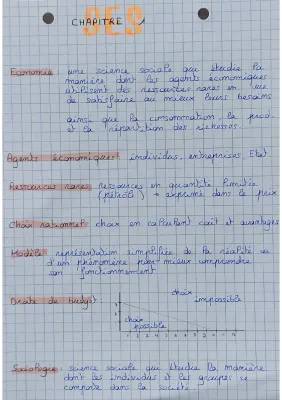 SES
CHAPITRE 1
Economie : une science sociale qui étudie la
manière dont les agents économiques
utilisent des ressources rares en vue
de satisfaire au mieux leurs besoins
ainsi que la consommation, la prod.
et la répartition des richesses.
Agents économiques : individus, entreprises, Etat
Ressources rares : ressources en quantité limitée
(pétrole) → exprimé dans le prix
Choix rationnel : choix en calculant coût et avantages
Modèle : représentation simplifiée de la réalité ou
d'un phénomène pour mieux comprendre
son fonctionnement
Droite de budget :
choix
impossible
choix
possible
Sociologie : science sociale qui étudie la manière
dont les individus et les groupes se
comporte dans la société